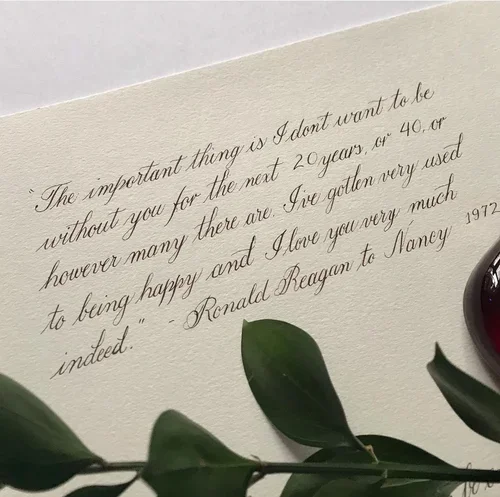 "The important thing is I dont want to be
without you for the next 20 years, or 40, or
however many there are. I've gotten very used
to being happy and I love you very much
indeed." - Ronald Reagan to Nancy 1972